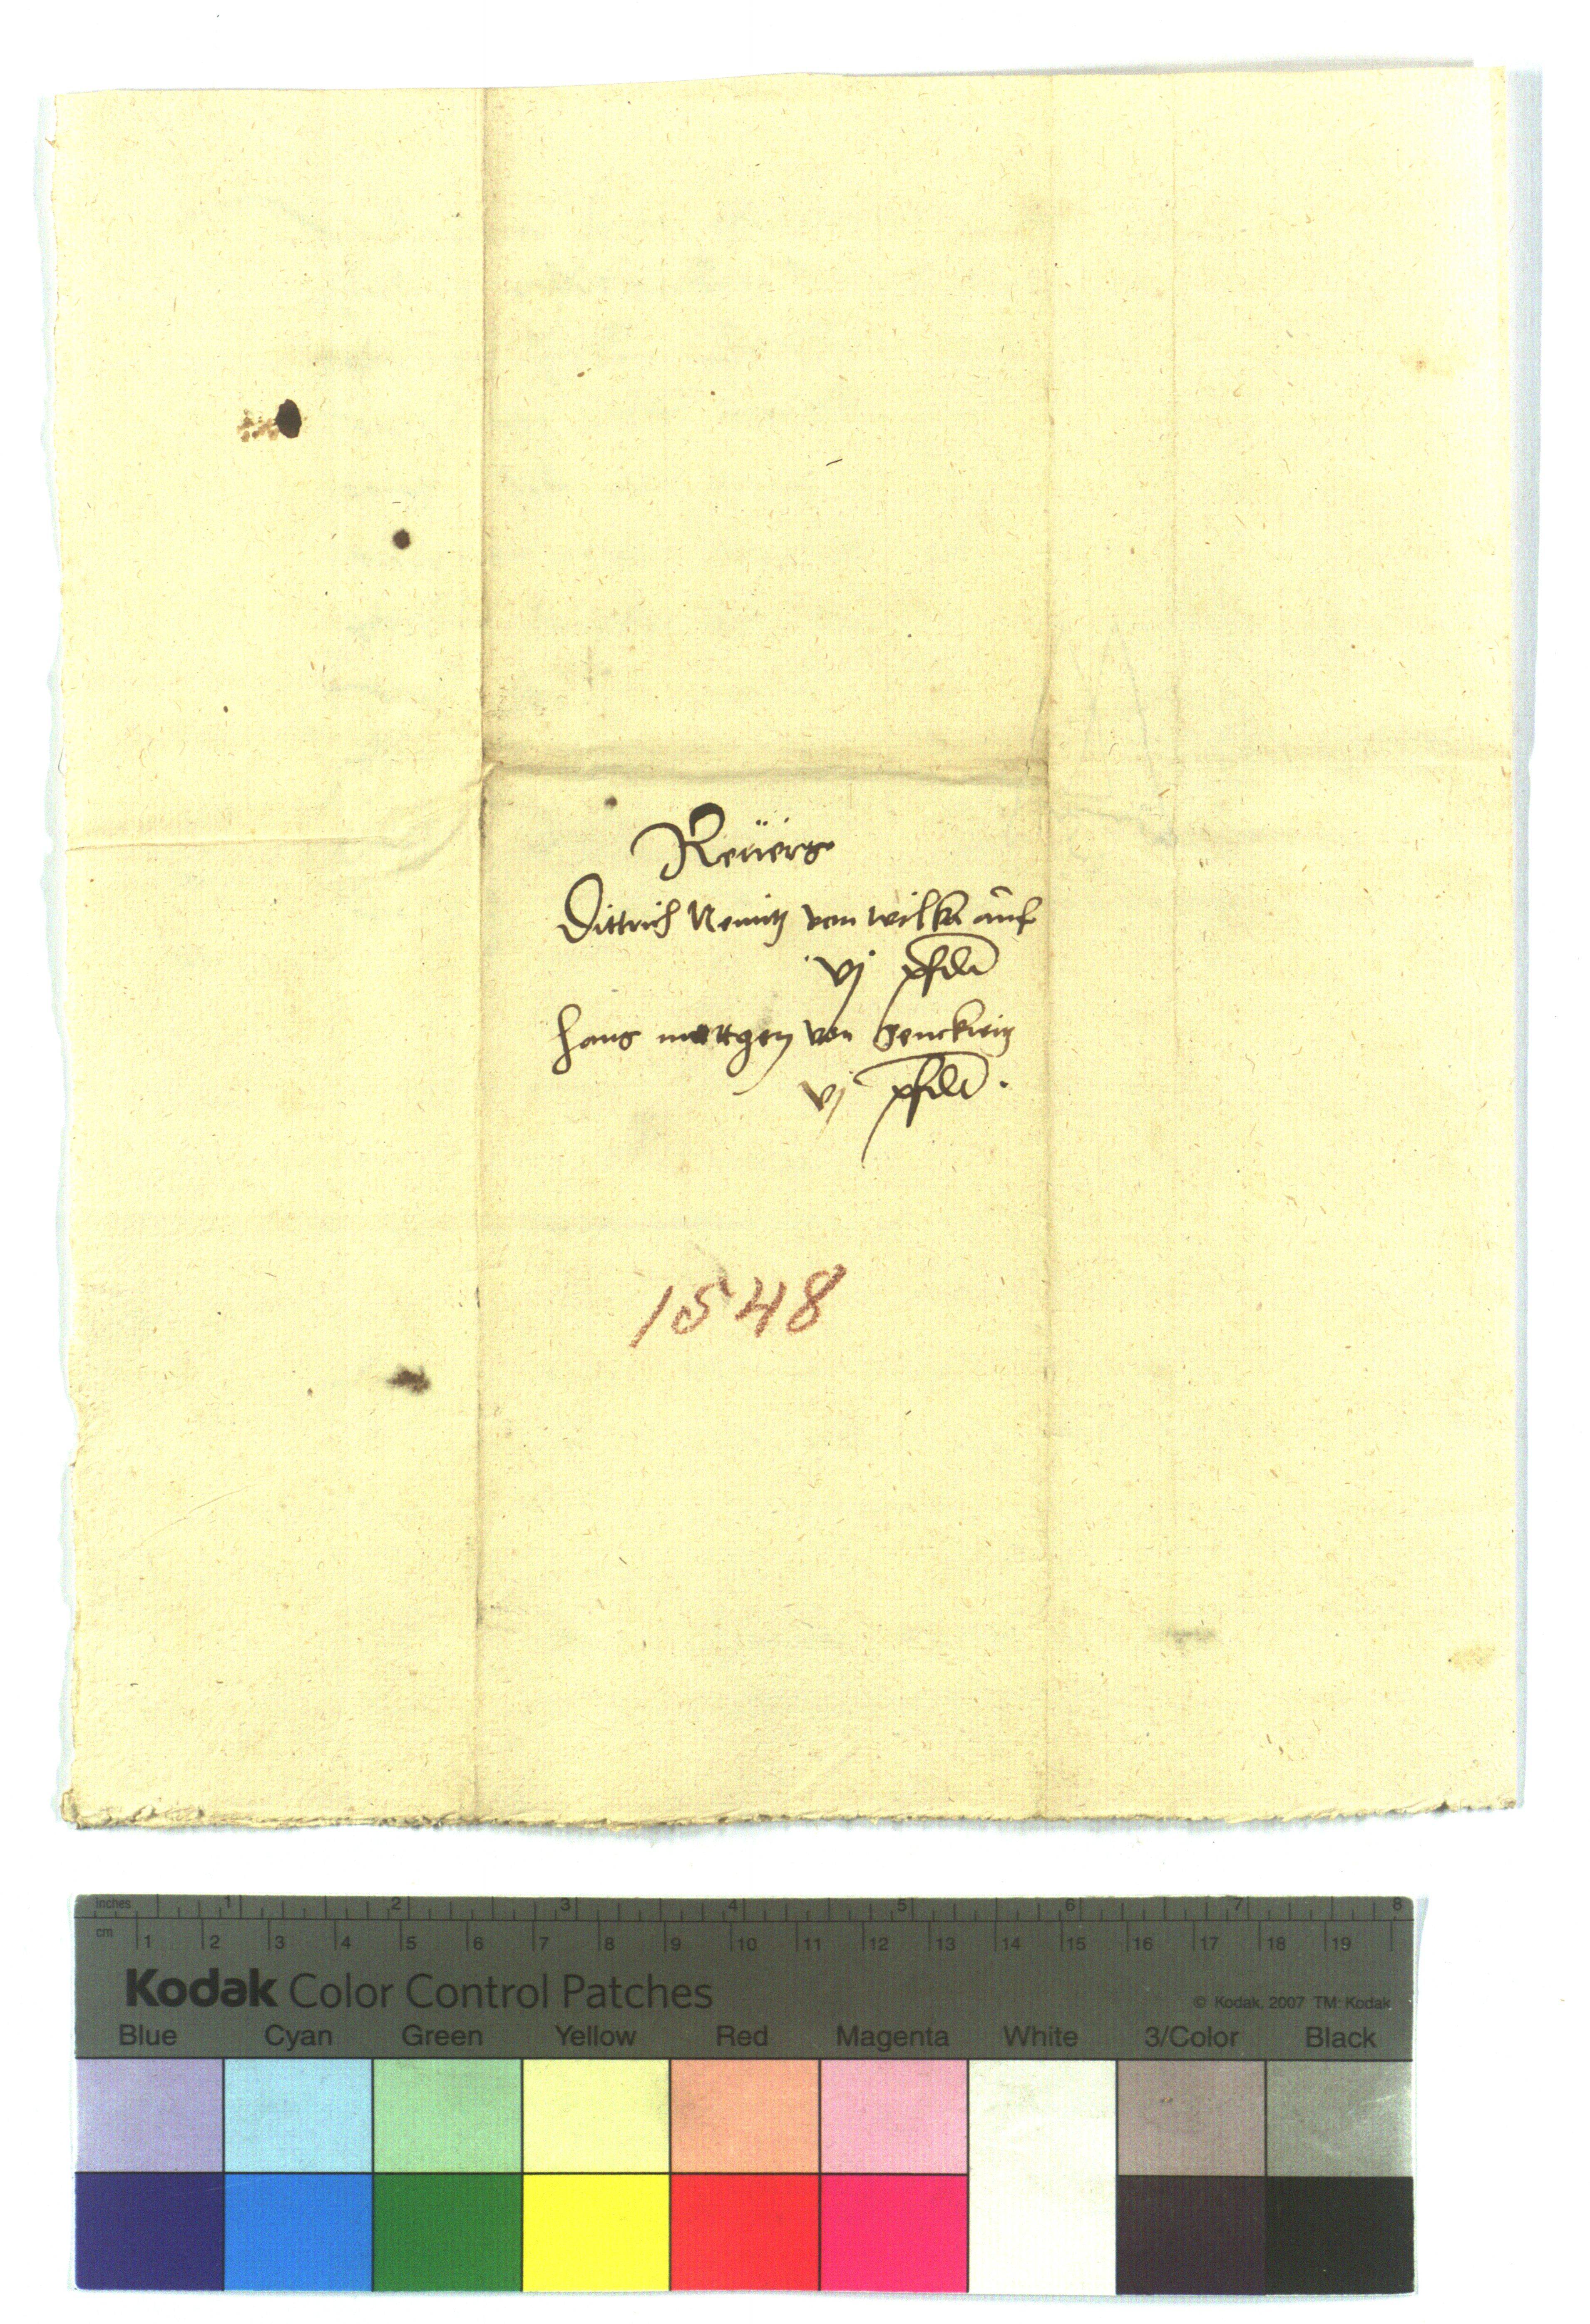 Reuers
Dittrich Nemitz von wilka auf
vj pferde
Hans von
vj pferde.
1548
inches 1 2 3 4 5 6 7 8
cm 1 2 3 4 5 6 7 8 9 10 11 12 13 14 15 16 17 18 19
Kodak Color Control Patches
© Kodak, 2007 TM: Kodak
Blue Cyan Green Yellow Red Magenta White 3/Color Black